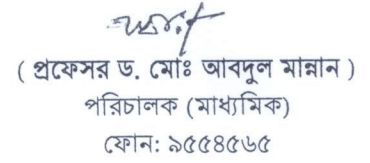 ( প্রফেসর ড. মোঃ আবদুল মান্নান )
পরিচালক (মাধ্যমিক)
ফোন: ৯৫৫৪৫৬৫